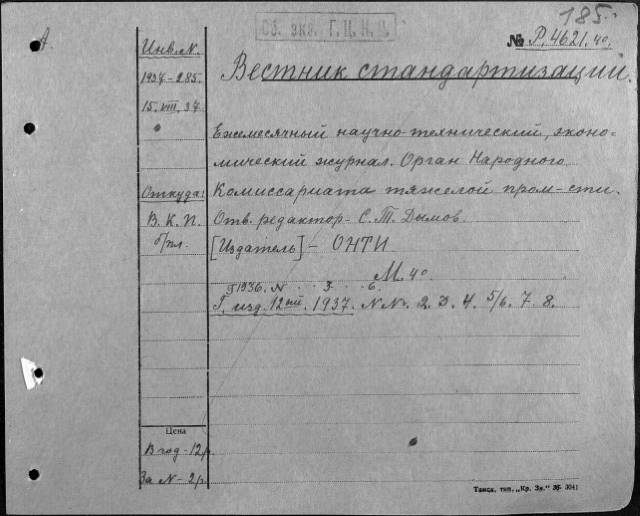 185.
Об. экз. Г. Ц. К. Ц.
№ Р. 4621. 4º.
А.
Инв. N.
Вестник стандартизаций.
1937-285.
15. VIII. 37.
Ежемесячный научно-технический, эконо-
мический журнал. Орган Народного
Откуда:
Комиссариата тяжелой пром-сти.
В. К. П.
Отв. редактор - С. Т. Дымов.
б/пл.
[Издатель] - ОНТИ.
М. 4º.
Г 1936. N . . 3 . . 6.
Г. изд. 12ый. 1937. N N. 2. 3. 4. 5/6. 7. 8.
Цена
В год - 12 р.
За N - 2 р.
Танск. тип. „Кр. Зн.“ 3041